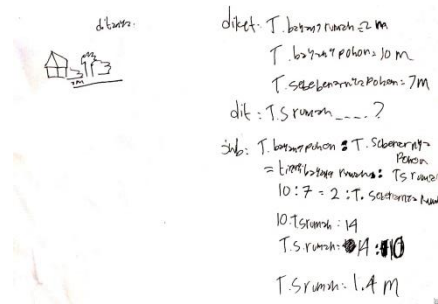 7m
diket : T. bayang rumah = 2 m
T. bayang pohon = 10 m
T. sebebenarnya pohon = 7m
dit : T.S rumah ____ ?
jwb : T. bayang pohon : T. Sebenarnya Pohon
= tinggi bayang rumah : T s rumah
10 : 7 = 2 : T. sebenarnya
10. T s rumah = 14
T. s. rumah = 14 : 10
T. S rumah = 1.4 m